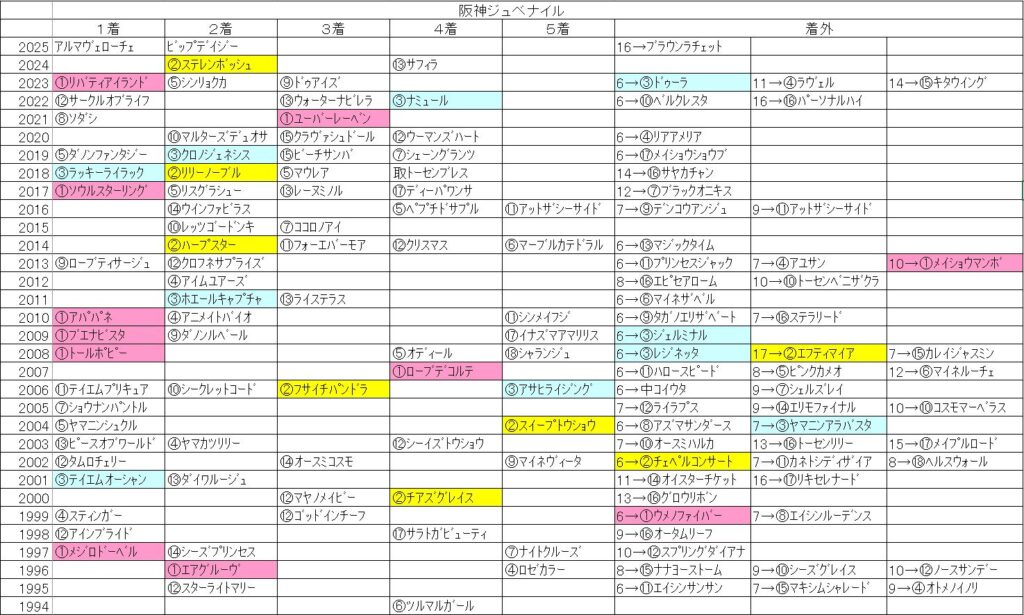 阪神ジュベナイル
1着 2着 3着 4着 5着 着外
2025 アルマヴェローチェ ビップデイジー 16→ブラウンラチェット
2024 ②ステレンボッシュ ⑬サフィラ
2023 ①リバティアイランド ⑤シンリョクカ ⑨ドゥアイズ 6→③ドゥーラ 11→④ラヴェル 14→⑮キタウイング
2022 ⑫サークルオブライフ ⑬ウォーターナビレラ ③ナミュール 6→⑩ベルクレスタ 16→⑯パーソナルハイ
2021 ⑧ソダシ ①ユーバーレーベン
2020 ⑩マルターズデュオサ ⑮クラヴァシュドール ⑫ウーマンズハート 6→④リアアメリア
2019 ⑤ダノンファンタジー ③クロノジェネシス ⑮ビーチサンバ ⑦シェーングランツ 6→⑰メイショウショウブ
2018 ③ラッキーライラック ②リリーノーブル ⑤マウレア 取トーセンブレス 14→⑯サヤカチャン
2017 ①ソウルスターリング ⑤リスグラシュー ⑬レーヌミノル ⑰ディーパワンサ 12→⑦ブラックオニキス
2016 ⑭ウインファビラス ⑤ペプチドサプル ⑪アットザシーサイド 7→⑨デンコウアンジュ 9→⑪アットザシーサイド
2015 ⑩レッツゴードンキ ⑦ココロノアイ
2014 ②ハープスター ⑪フォーエバーモア ⑫クリスマス ⑥マーブルカテドラル 6→⑬マジックタイム
2013 ⑨ローブティサージュ ⑫クロフネサプライズ 6→⑪プリンセスジャック 7→④アユサン 10→①メイショウマンボ
2012 ④アイムユアーズ 8→⑯エピセアローム 10→⑩トーセンベニザクラ
2011 ③ホエールキャプチャ ⑬ライステラス 6→⑥マイネザベル
2010 ①アパパネ ④アニメイトバイオ ⑪シンメイフジ 6→⑨タガノエリザベート 7→⑯ステラリード
2009 ①ブエナビスタ ⑨ダノンルベール ⑰イナズマアマリリス 6→③ジェルミナル
2008 ①トールポピー ⑤オディール ⑱シャランジュ 6→③レジネッタ 17→②エフティマイア 7→⑮カレイジャスミン
2007 ①ローブデコルテ 6→⑪ハロースピード 8→⑤ピンクカメオ 12→⑥マイネルーチェ
2006 ⑪テイエムプリキュア ⑩シークレットコード ②フサイチパンドラ ③アサヒライジング 6→中コイウタ 9→⑦シェルズレイ
2005 ⑦ショウナンパントル 7→⑫ライラプス 9→⑭エリモファイナル 10→⑩コスモマーベラス
2004 ⑤ヤマニンシュクル ②スイープトウショウ 6→⑧アズマサンダース 7→③ヤマニンアラバスタ
2003 ⑬ピースオブワールド ④ヤマカツリリー ⑫シーイズトウショウ 7→⑩オースミハルカ 13→⑯トーセンリリー 15→⑰メイプルロード
2002 ⑫タムロチェリー ⑭オースミコスモ ⑨マイネヴィータ 6→②チャペルコンサート 7→⑪カネトシディザイア 8→⑱ヘルスウォール
2001 ③テイエムオーシャン ⑬ダイワルージュ 11→⑭オイスターチケット 16→⑰リキセレナード
2000 ⑫マヤノメイビー ②チアズグレイス 13→⑯グロウリボン
1999 ④スティンガー ⑫ゴッドインチーフ 6→①ウメノファイバー 7→⑧エイシンルーデンス
1998 ⑫アインブライド ⑰サラトガビューティ 9→⑯オータムリーフ
1997 ①メジロドーベル ⑭シーズプリンセス ⑦ナイトクルーズ 10→⑫スプリングダイアナ
1996 ①エアグルーヴ ④ロゼカラー 8→⑮ナナヨーストーム 9→⑩シーズグレイス 10→⑫ノースサンデー
1995 ⑫スターライトマリー 6→⑪エイシンサンサン 7→⑮マキシムシャレード 9→④オトメノイノリ
1994 ⑥ツルマルガール